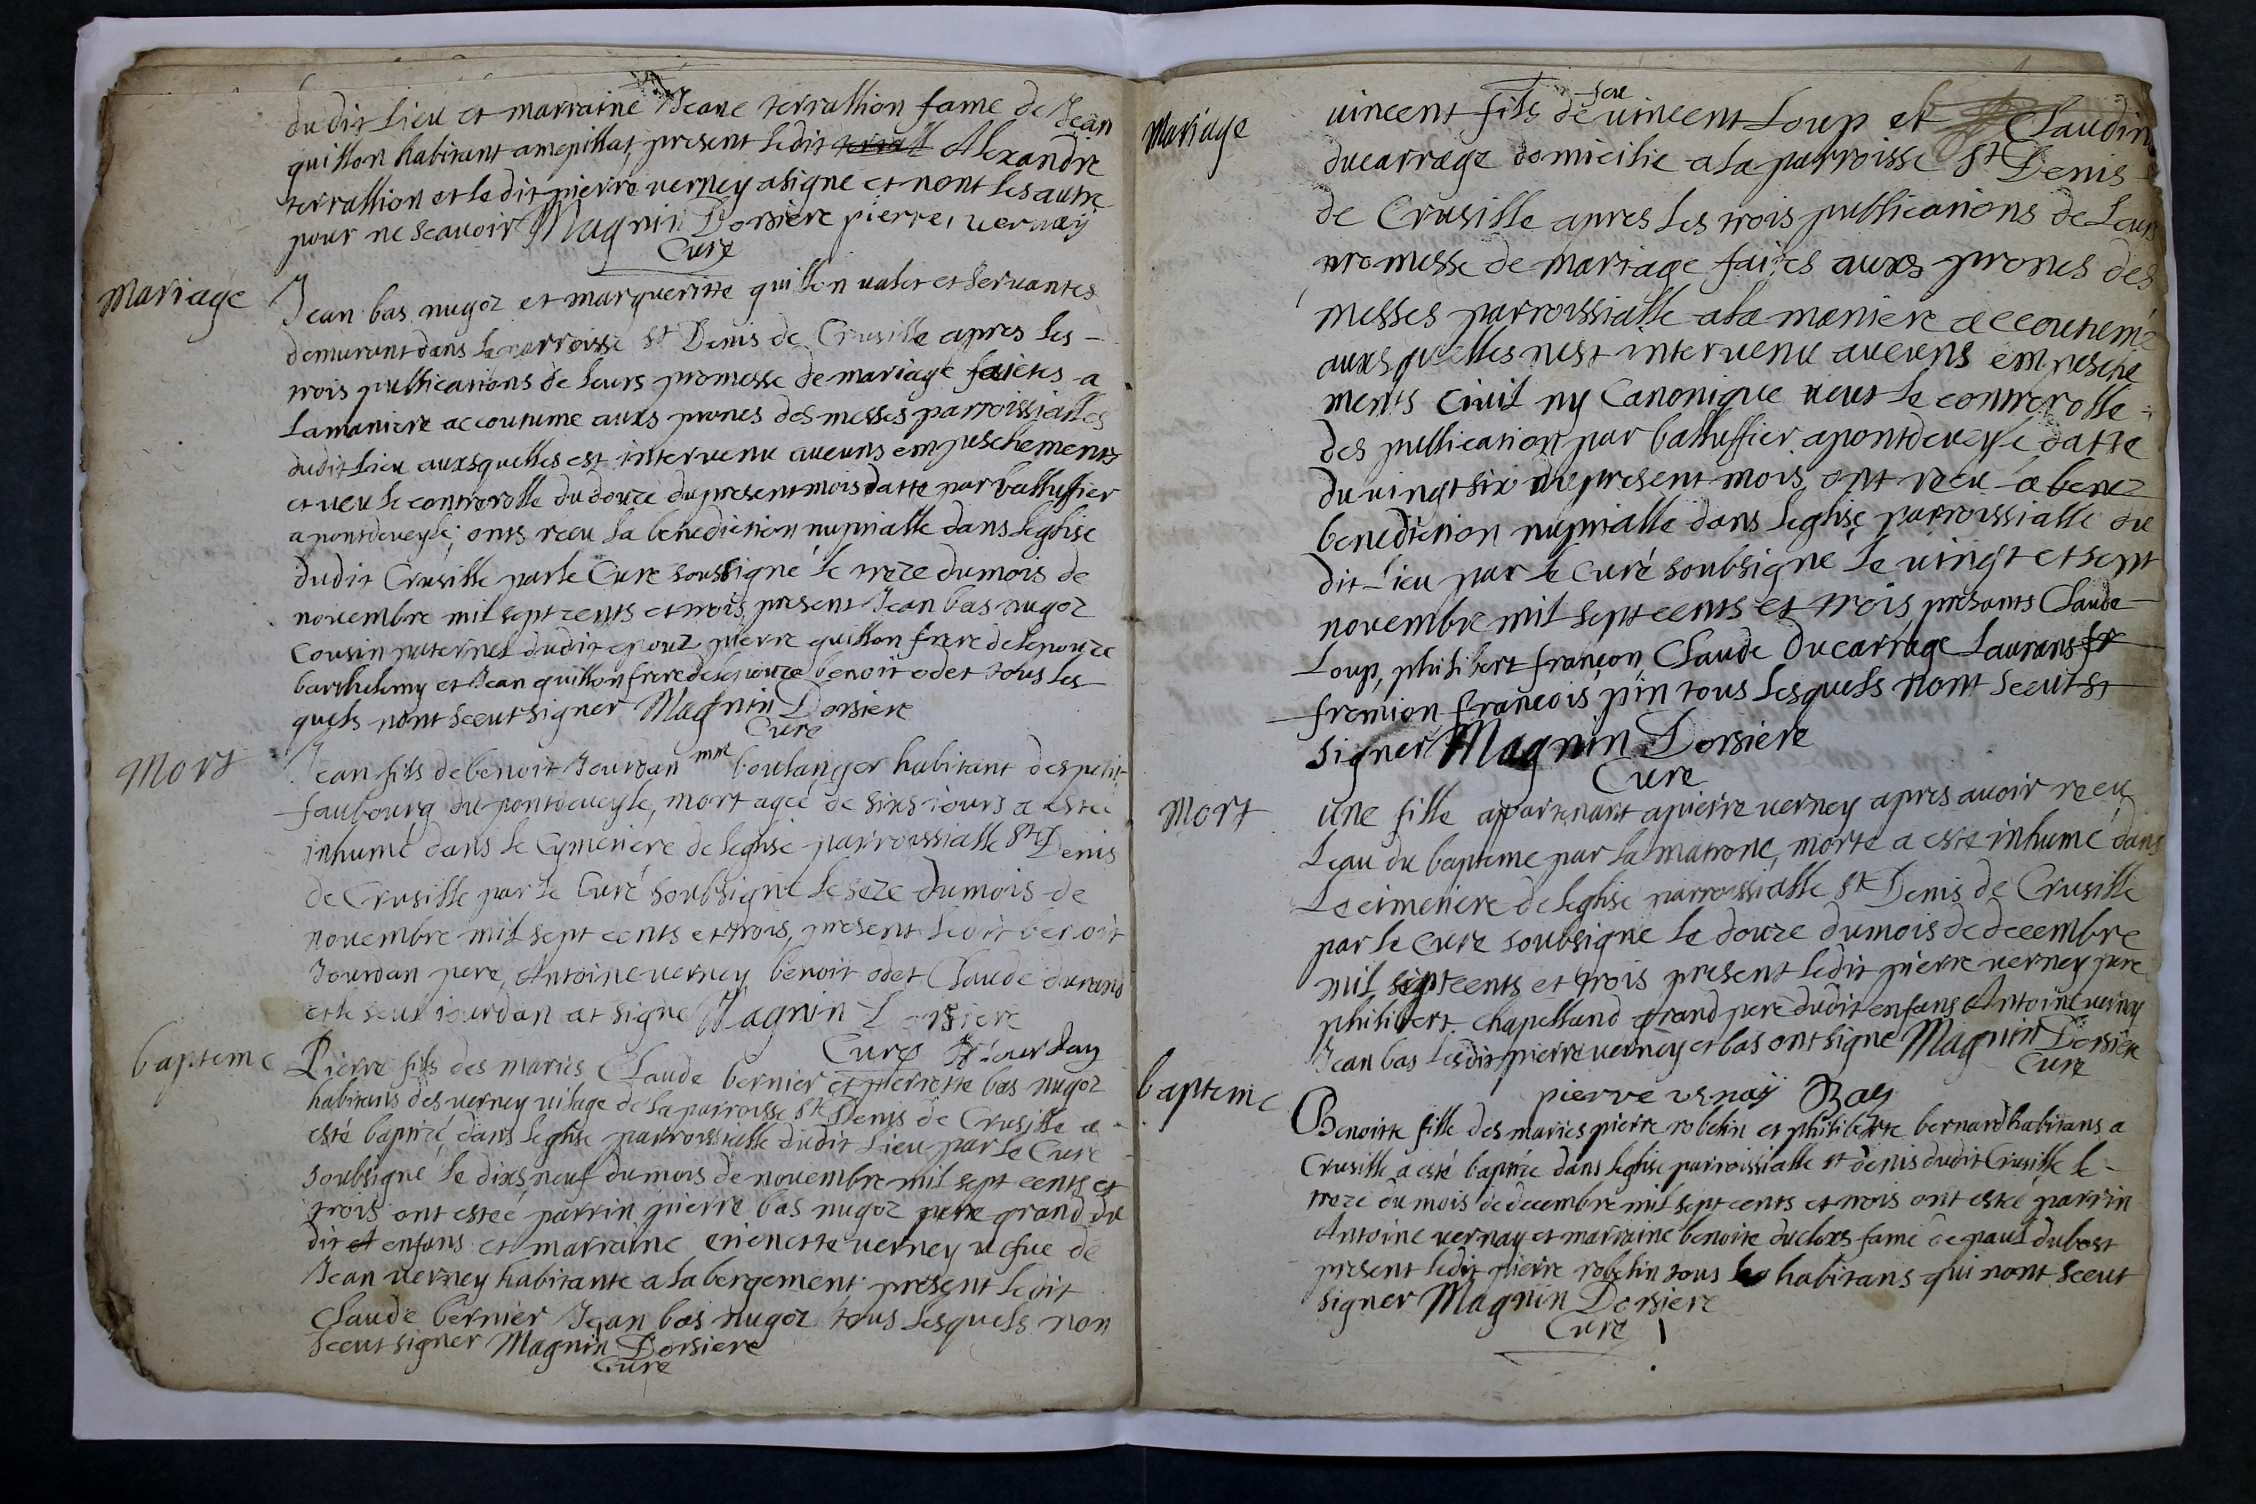 dudit lieu et marraine Jeane terrallion fame de Jean
guillon habitant amepillat, present ledit Alexandre
terrallion et ledit pierre verney asigne et nont les autre
pour ne scavoir Magnin Dorsiere pierre vernay
Curé
Mariage
Jean bas nugoz et margueritte guillon valet et servantes
demurant dans la parroisse St Denis de Crusille apres les
trois publications de leurs promesse de mariage faictes a
la maniere accoutume auxs prones des messes parroissialles
dudit lieu auxsquelles est intervenu aucuns empeschements
et veu le controrolle du douze du present mois datte par balluffier
a pontdeveyle, onts receu la benediction nuptialle dans leglise
dudit Crusille par le Curé soubsigné le treze du mois de
novembre mil sept cents et trois, present Jean bas nugoz
cousin paternel dudit epouz pierre guillon frere de lepouze
barthelemy et Jean guillon frere de lepouze benoit odet tous les
quels nont sceut signer Magnin Dorsiere
Curé
Mort
Jean fils de benoit Jourdan mre boulanger habitant des petit
faubourg du pontdeveyle, mort ageé de sixs iours a esteé
inhumé dans le Cymetiere de leglise parroissialle St Denis
de Crusille par le Curé soubsigne le seze du mois de
novembre mil sept cents et trois, present ledit benoit
Jourdan pere, Antoine verney benoit odet Claude durand
et le seul iourdan at signe Magnin Dorsiere
Curé Jourdan
bapteme
Pierre fils des maries Claude bernier et pierrette bas nugoz
habitans des verney vilage de la parroisse St Denis de Crusille a
esté baptizé dans leglise parroissialle dudit lieu par le Curé
soubsigne le dixs neuf du mois de novembre mil sept cents et
trois ont esteé parrin pierre bas nugoz pere grand du
dit et enfans et marraine etienette verney vefve de
Jean verney habitante a labergement present ledit
Claude bernier Jean bas nugoz tous lesquels non
sceut signer Magnin Dorsiere
Curé
Mariage
vincent fils de feu vincent Loup et Claudin
ducarrage domicilie a la parroisse St Denis
de Crusille apres les trois publications de leurs
promesse de mariage faites auxs prones des
messes parroissialle a la maniere accoutumé
auxsquelles nest intervenu aucuns empesche
ments civil ny Canonique veut le controrolle
des publication par balluffier apontdeveyle datte
du vingt six du present mois ont receu la benez
benediction nuptialle dans leglise parroissialle du
dit lieu par le Curé soubsigne le vingt et sept
novembre mil sept cents et trois presants Claude
Loup, philibert françon Claude Ducarrage Laurans fr
fremion françois pin tous lesquels nont sceut si
signer Magnin Dorsiere
Curé
Mort
Une fille apartenant apierre verney apres avoir receu
Leau du bapteme par la matrone, morte a esté inhumé dans
Le cimetiere de leglise parroissialle St Denis de Crusille
par le Curé soubsigne le douze du mois de decembre
mil septcents et trois present ledit pierre verney pere
philibert chapelland grand pere dudit enfans Antoine verney
Jean bas lesdit pierre verney et bas ont signe Magnin Dorsiere
Curé
pierre vernay Bas
bapteme
Benoitte fille des maries pierre robelin et philiberte bernard habitans a
Crusille a esté baptize dans leglise parroissialle st denis dudit Crusille le
treze du mois de decembre mil sept cents et trois ont esteé parrin
Antoine vernay et marraine benoite duclors fame de paul dubost
present ledit pierre robelin tous habitans qui nont sceut
signer Magnin Dorsiere
Curé